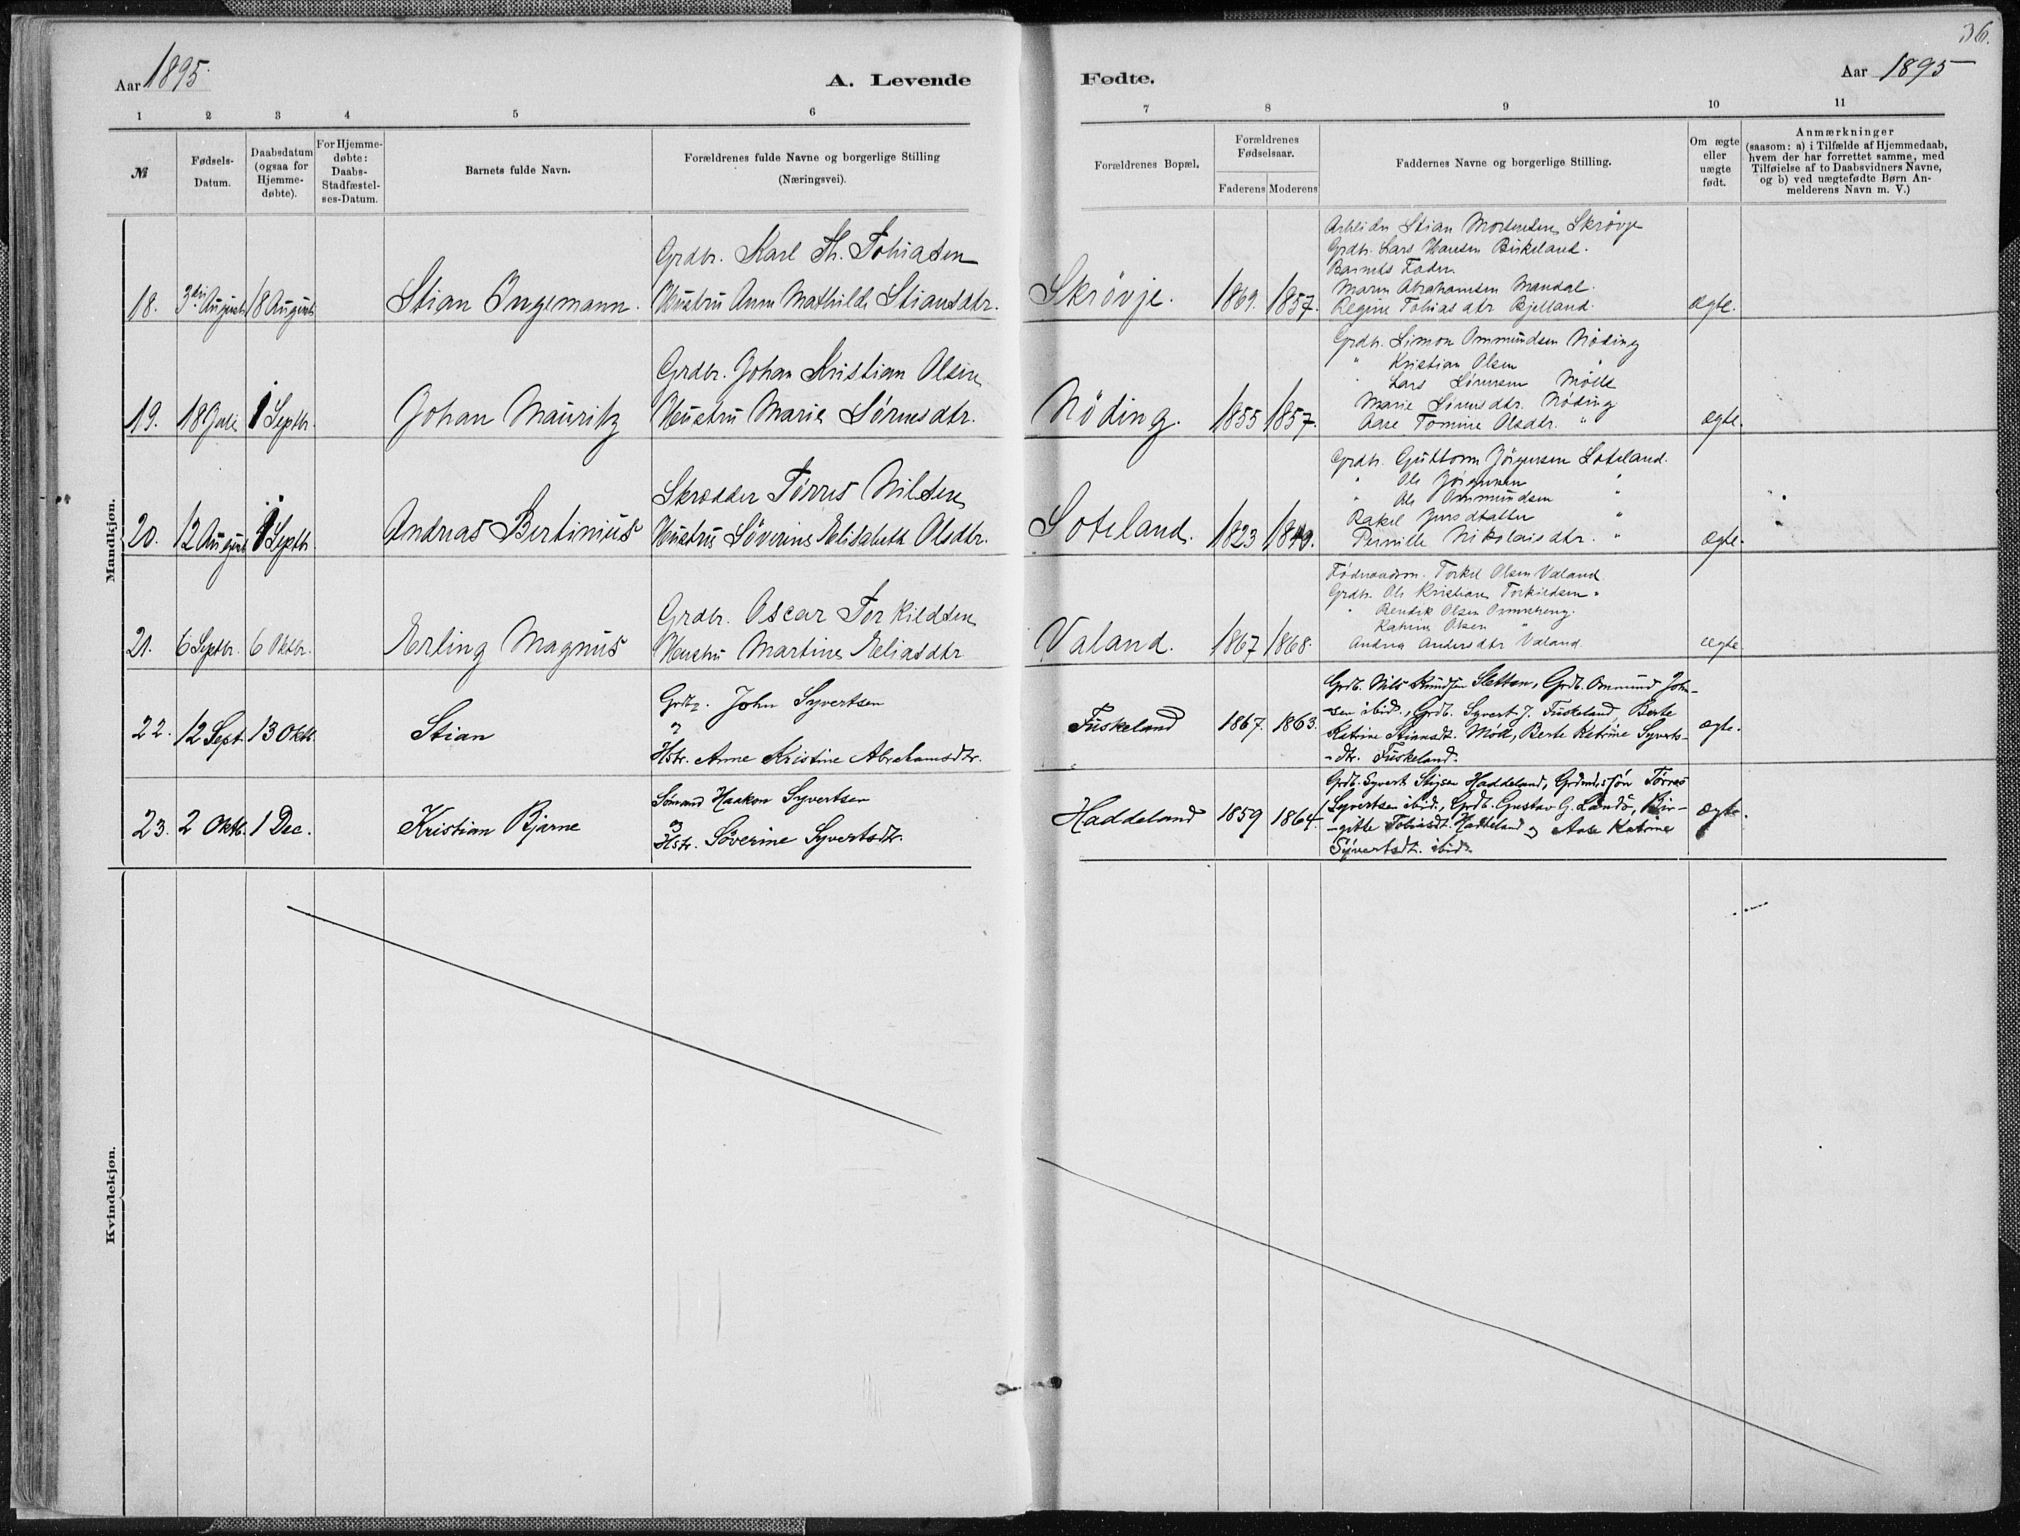 36.
Aar 1895.
A. Levende
Fødte.
Aar 1895
1 2 3 4 5 6
7 8 9 10 11
№
Fødsels-Datum.
Daabsdatum (ogsaa for Hjemme-døbte).
For Hjemme-døbte: Daabs-Stadfæstel-ses-Datum.
Barnets fulde Navn.
Forældrenes fulde Navne og borgerlige Stilling (Næringsvei).
Forældrenes Bopæl.
Forældrenes Fødselsaar.
Faderens Moderens
Faddernes Navne og borgerlige Stilling.
Om ægte eller uægte født.
Anmærkninger
(saasom: a) i Tilfælde af Hjemmedaab,
hvem der har forrettet samme, med
Tilføielse af to Daabsvidners Navne,
og b) ved uægtefødte Børn An-
melderens Navn m. V.)
Mandkjøn.
18. 3die August 18 August Stian Ingemann.
Grdbr. Karl Th. Tobiasen
Hustru Anna Mathilde Stiansdtr.
Skrøvje. 1869. 1857.
Arbeider Stian Mortensen Skrøvje
Grdbr. Lars Hansen Birkeland.
Barnets Fader
Maren Abrahamsen Mandal.
Regine Tobiasdtr Bjelland.
ægte.
19. 18 Juli 1 Septbr. Johan Mauritz
Grdbr. Johan Kristian Olsen
Hustru Marie Sørensdtr.
Nøding. 1855 1857.
Grdbr. Simon Ommundsen Nøding
" Kristian Olsen "
" Lars Sørensen Mølle
Marie Sørensdtr. Nøding
Aase Tomine Olsdtr. "
ægte.
20. 12 August 1 Septbr. Andreas Bertinius
Skrædder Tørres Nilsen
Hustru Søverine Elisabeth Olsdtr.
Loteland. 1823
Grdbr. Guttorm Jörgensen Loteland.
" Ole Jörgensen "
" Ole Ommundsen "
Rakel "
Pernille Nikolaisdtr. "
ægte.
21. 6 Septbr. 6 Oktbr. Erling Magnus
Grdbr. Oscar Torkildsen
Hustru Martine Eliasdtr
Valand. 1867 1868.
Torkel Olsen Valand
Grdbr. Ole Kristian Torkildsen "
" Bendik Olsen
Katrine Olsen "
Andrea Andersdtr Valand.
ægte
22. 12 Sept. 13 Oktb. Stian
Grdb. John Syvertsen
og
Hstr. Anne Kristine Abrahamsdtr.
Fuskeland 1867. 1863.
Grdb. Nils Knudsen Sletten, Grdb. Ommund John-
-sen ibid., Grdb. Syvert J. Fuskeland, Berte
Katrine Stiansdt. Møll, Berte Katrine Syverts-
-dtr. Fuskeland.
ægte.
23. 2 Oktb. 1 Dec. Kristian Bjarne
Sømand Haakon Syvertsen
og
Hstr. Søverine Syvertsdtr.
Haddeland 1859 1864.
Grdb. Syvert Haddeland, Tørres
Syvertsen ibid., Grdb. Gustav G. Landø, Bir-
-gitte Tobiasdt. Haddeland og Aase Katrine
Syvertsdt. ibid.
ægte.
Kvindekjøn.